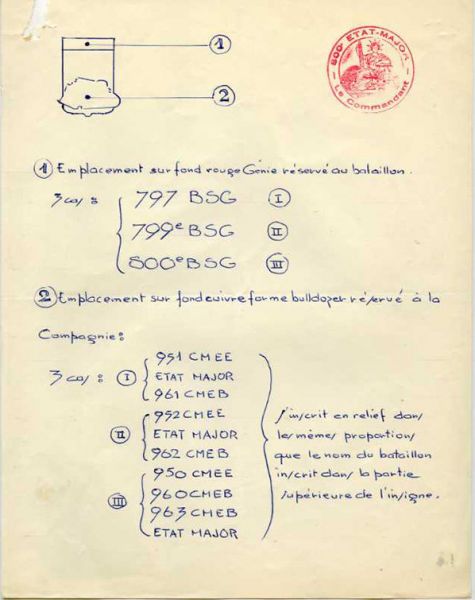 1
2
800e ETAT-MAJOR
Le Commandant
① Emplacement sur fond rouge Génie réservé au bataillon.
3 cas : 797 BSG I
799e BSG II
800e BSG III
② Emplacement sur fond cuivre forme bulldozer réservé à la
Compagnie :
3 cas : I 951 CMEE
ETAT MAJOR
961 CMEB
II 952 CMEE
ETAT MAJOR
962 CMEB
III 950 CMEE
960 CMEB
963 CMEB
ETAT MAJOR
s'inscrit en relief dans
les mêmes proportions
que le nom du bataillon
inscrit dans la partie
supérieure de l'insigne.